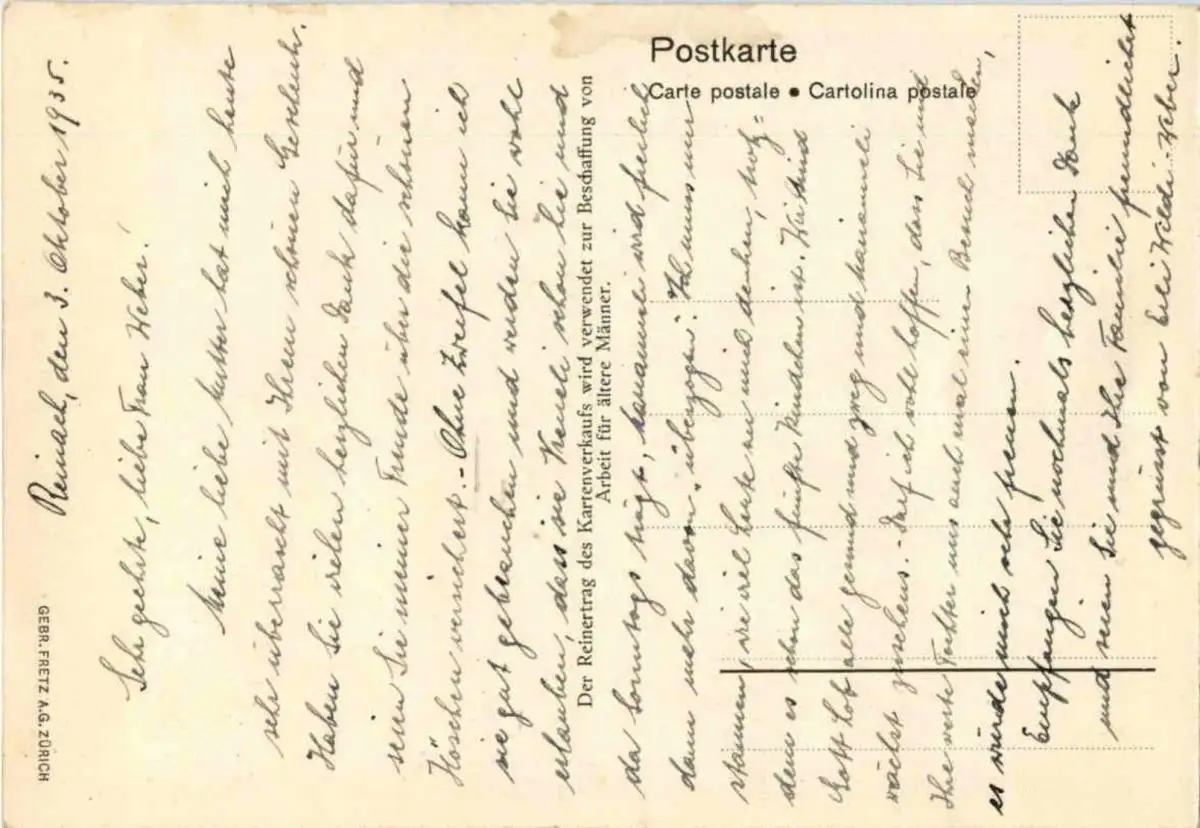 Postkarte
Carte postale • Cartolina postale
Der Reinertrag des Kartenverkaufs wird verwendet zur Beschaffung von
Arbeit für ältere Männer.
GEBR. FRETZ A.G. ZÜRICH
Reinach, den 3. Oktober 1935.
Sehr geehrte, liebe Frau Weber!
Meine liebe Mutter hat mich heute
sehr überrascht mit Ihrem schönen Geschenk.
Haben Sie vielen herzlichen Dank dafür und
seien Sie meiner Freude über die schönen
Höschen versichert. - Ohne Zweifel kann ich
sie gut gebrauchen und werden Sie wohl
erlauben, dass sie Vreneli schon hie und
da Sonntags trägt, Hanneli wird freilich
dann mehr davon "überzogen". Ich muss nur
staunen, wie viel Leute an mich denken, trotz=
dem es schon das fünfte Kindchen ist. Wir sind
Gott Lob alle gesund und zwäg und
wächst zusehens. - Darf ich wohl hoffen, dass Sie und
Ihre werte Tochter uns auch mal einen Besuch machen,
es würde mich sehr freuen.
Empfangen Sie nochmals herzlichen Dank
und seien Sie und Ihre Familie freundlichst
gegrüsst von Weber.